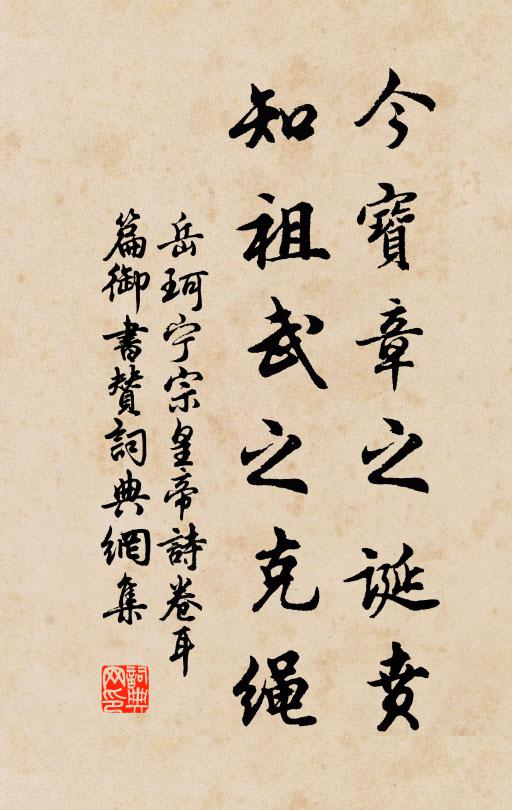 今寶章之誕賁
知祖武之克绳
岳珂宁宗皇帝詩卷耳
篇御書贊詞典網集
詞典
网印